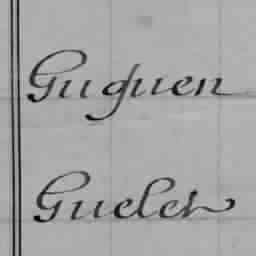 Guguen
Gueler